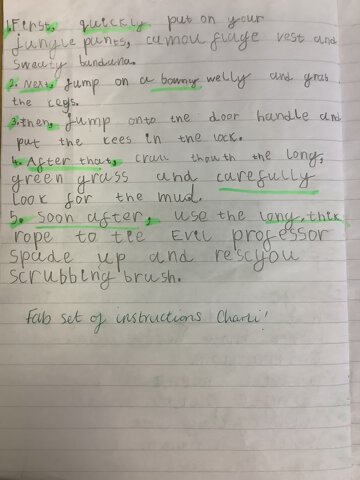 1. First, quickly put on your
jungle pants, camou flage vest and
sweaty bandana.
2. Next, jump on a bouncy welly and grab
the kegs.
3. Then, jump onto the door handle and
put the kees in the lock.
4. After that, crawl thowth the long,
green grass and carefully
look for the mud.
5. Soon after, use the long, thik
rope to tie Evil professor
spade up and rescyou
scrubbing brush.
Fab set of instructions Charli!